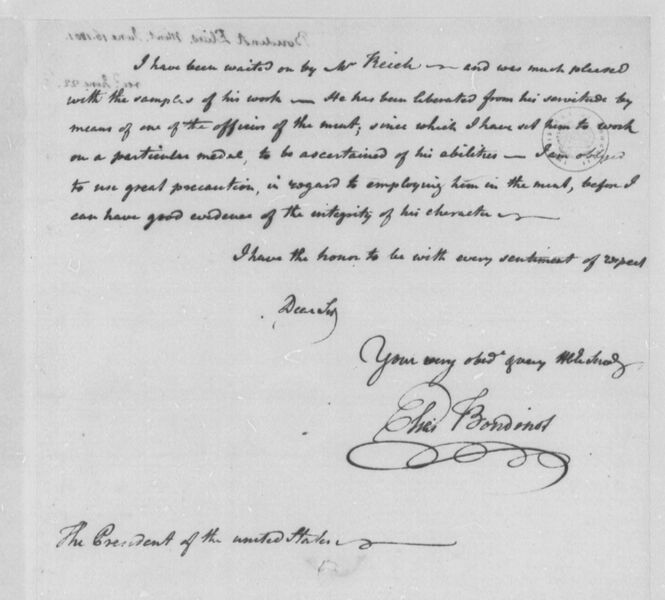 Boudinot Elias. Mint. June 16. 1801.
recd June 22.
I have been waited on by Mr Reich — and was much pleased
with the samples of his work — He has been liberated from his servitude by
means of one of the officers of the mint, since which I have set him to work
on a particular medal, to be ascertained of his abilities — I am obliged
to use great precaution, in regard to employing him in the mint, before I
can have good evidence of the integrity of his character —
I have the honor to be with every sentiment of respect
Dear Sir
Your very obedt &
Elias Boudinot
The President of the united States —